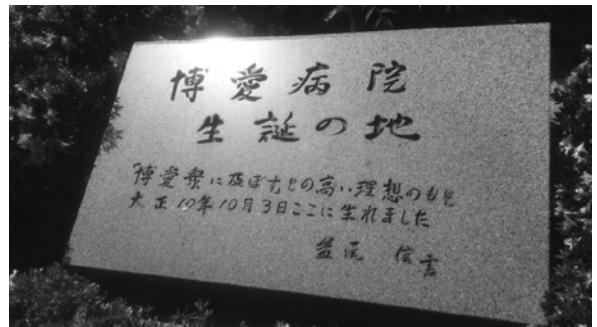 博愛病院
生誕の地
「博愛衆に及ぼす」との高い理想のもと
大正10年10月3日ここに生れました
信